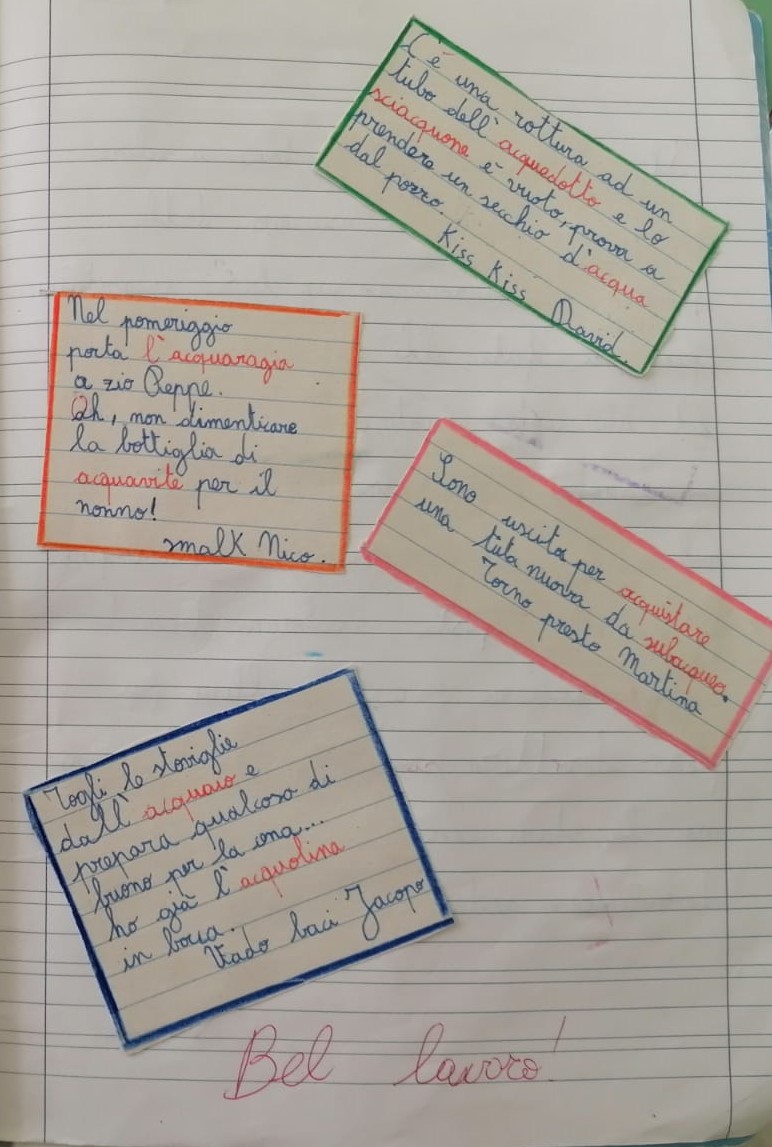 C'è una rottura ad un
tubo dell'acquedotto e lo
sciacquone è vuoto, prova a
prendere un secchio d'acqua
dal pozzo.
Kiss Kiss David.
Nel pomeriggio
porta l'acquaragia
a zio Peppe.
Ah, non dimenticare
la bottiglia di
acquavite per il
nonno!
smalk Nico.
Sono uscita per acquistare
una tuta nuova da subacqueo.
Torno presto Martina
Togli le stoviglie
dall'acquaio e
prepara qualcosa di
buono per la cena...
ho già l'acquolina
in bocca.
Vado baci Jacopo
Bel lavoro!